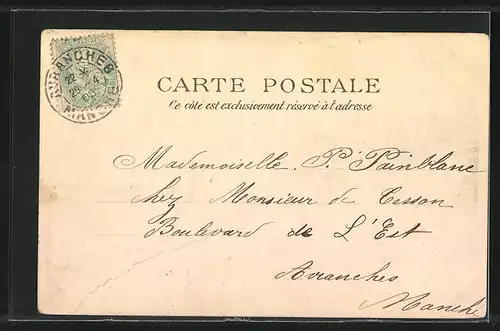 AVRANCHES
MANCHE
CARTE POSTALE
Ce côté est exclusivement réservé à l'adresse
Mademoiselle P. Painblanc
chez Monsieur de Cesson
Boulevard de L'Est
Avranches
Manche